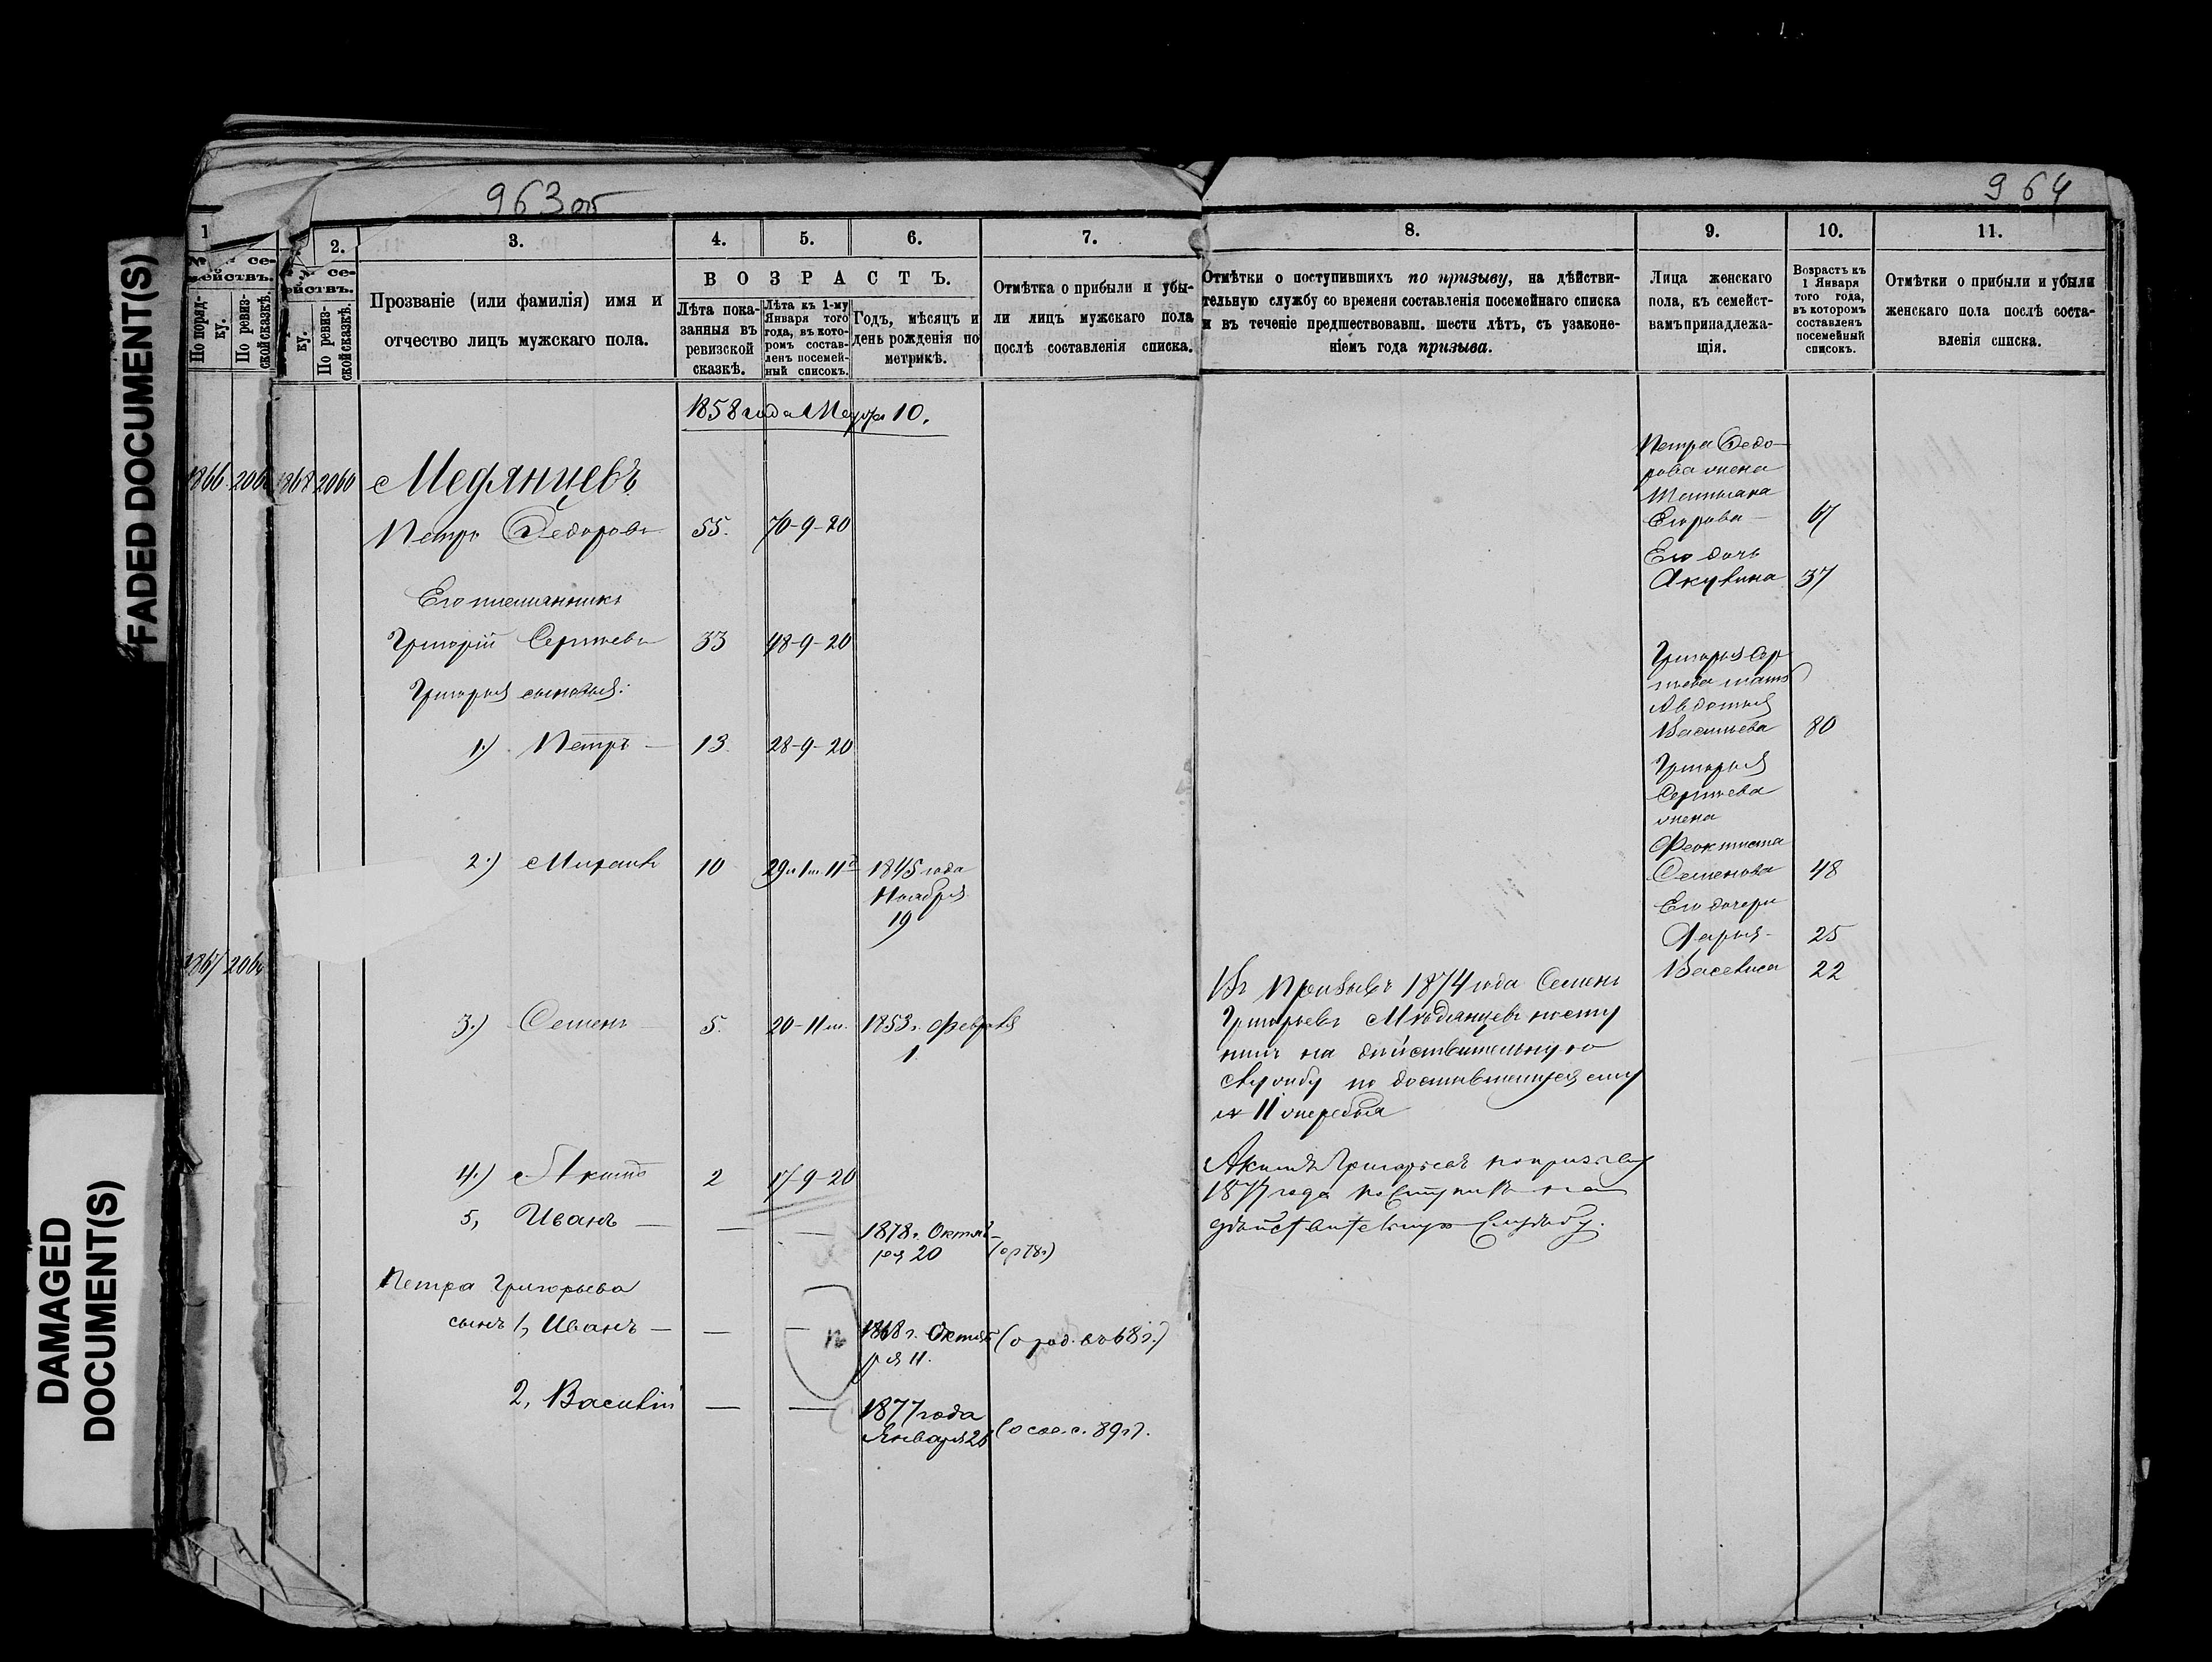 FADED DOCUMENT(S)
DAMAGED
DOCUMENT(S)
963об
1
се-
мействъ.
По поряд-
ку.
По ревиз-
ской сказкѣ.
2.
№ се-
ействъ.
ку.
По ревиз-
ской сказкѣ.
3.
Прозваніе (или фамилія) имя и
отчество лицъ мужскаго пола.
4.
5.
6.
ВОЗРАСТЪ.
Лѣта пока-
занныя въ
ревизской
сказкѣ.
Лѣта къ 1-му
Января того
года, въ кото-
ромъ состав-
ленъ посемей-
ный списокъ.
Годъ, мѣсяцъ и
день рожденія по
метрикѣ.
7.
Отмѣтка о прибыли и убы-
ли лицъ мужскаго пола
послѣ составленія списка.
1858 года Марта 10.
1866 206 1868 2060 Медянцевъ
Петръ Федоровъ 55. 70-9-20
Его племянникъ
Григорій Сергѣевъ 33 48-9-20
Григорья сыновья:
1.) Петръ — 13 28-9-20
2.) Михаилъ 10 1845 года
Ноября
19
1867 2060
3.) Семенъ 5. 20-11 м. 1853 г. Февраля
1
4.) Акимъ 2 17-9-20
5, Иванъ — — — 1878 г. Октяб-
ря 20
Петра Григорьева
сынъ 1, Иванъ — — — 1868 г. Октяб (о род. въ 68 г.)
ря 11.
2, Василій — — 1877 года
Января 28 89 г.
964
8.
Отмѣтки о поступившихъ по призыву, на дѣйстви-
тельную службу со времени составленія посемейнаго списка
и въ теченіе предшествовавш. шести лѣтъ, съ узаконе-
ніемъ года призыва.
9.
Лица женскаго
пола, къ семейст-
вамъ принадлежа-
щія.
10.
Возрастъ къ
1 Января
того года,
въ которомъ
составленъ
посемейный
списокъ.
11.
Отмѣтки о прибыли и убыли
женскаго пола послѣ соста-
вленія списка.
Въ призывъ 1874 года Семенъ
Григорьевъ Мѣдянцевъ посту
пилъ на дѣйствительную
службу по доставшемуся ему
№ 11 жеребья
Акимъ Григорьевъ по призыву
1877 года поступилъ на
дѣйствительную службу.
Петра Федо-
рова жена
Татьяна
Егорова — 67
Его дочь
Акулина 37
Григорья Сер
гѣева мать
Авдотья
Васильева 80
Григорья
Сергѣева
жена
Феоктиста
Семенова 48
Его дочери
Дарья - 25
Василиса 22